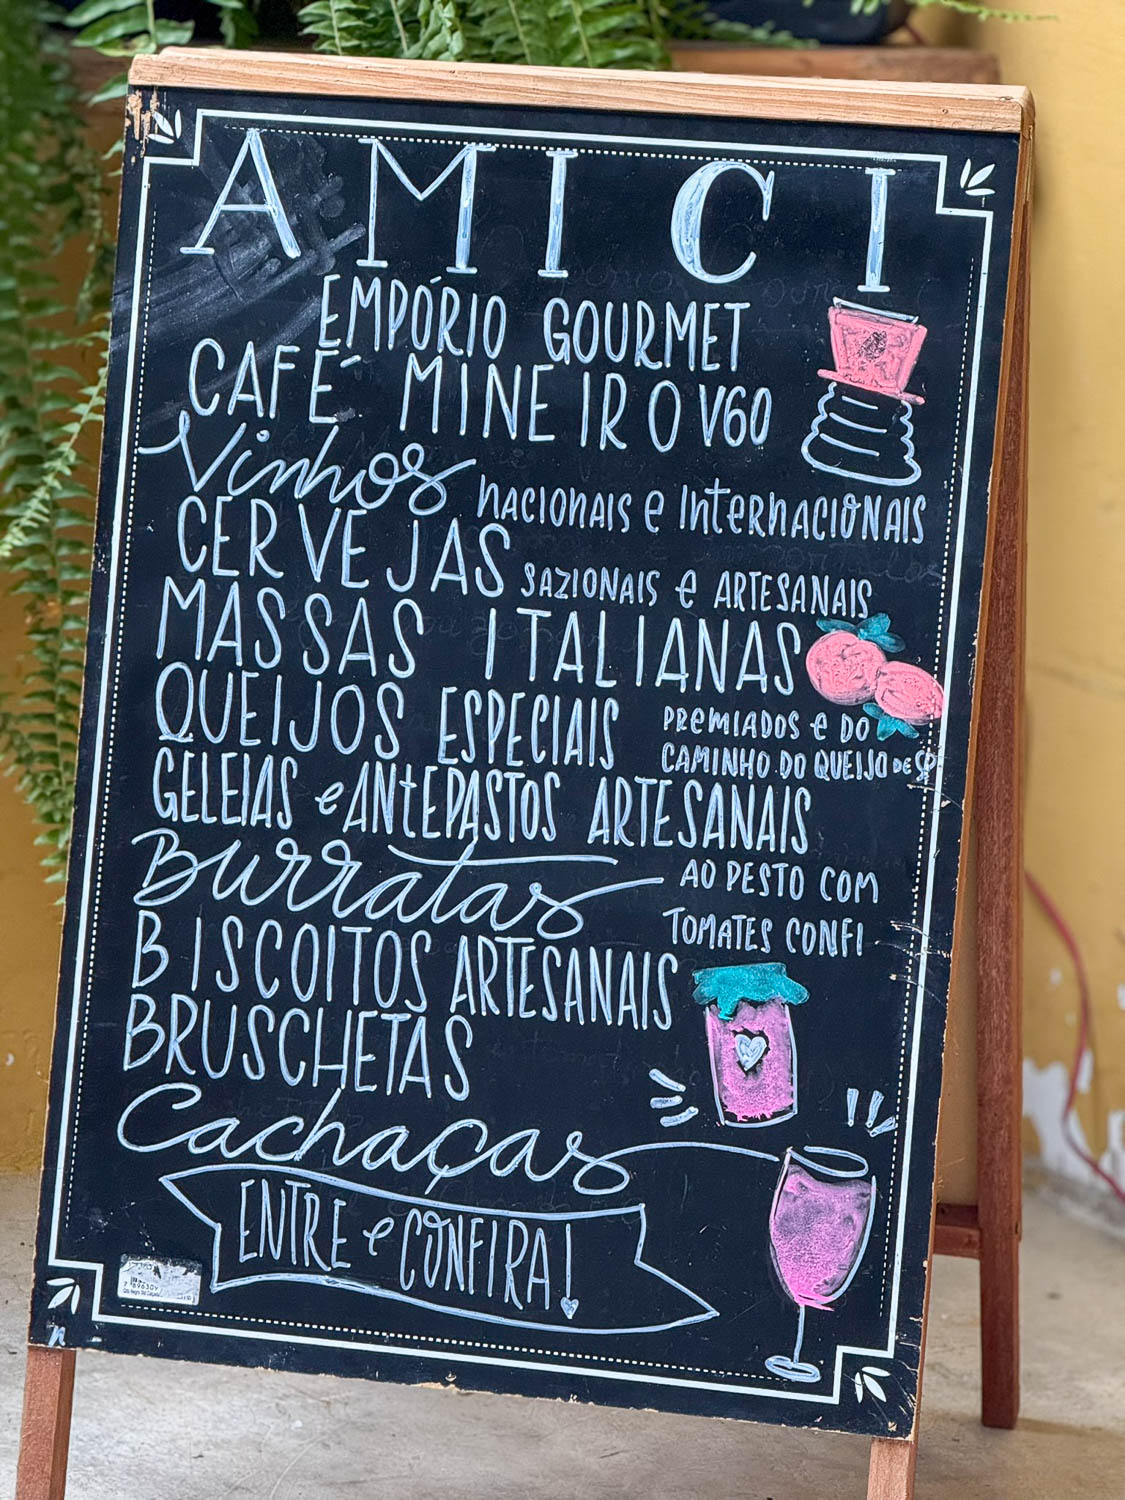 AMICI
EMPÓRIO GOURMET
CAFÉ MINEIRO V60
Vinhos NACIONAIS e INTERNACIONAIS
CERVEJAS SAZIONAIS e ARTESANAIS
MASSAS ITALIANAS
QUEIJOS ESPECIAIS PREMIADOS E DO
CAMINHO DO QUEIJO DE SP
GELEIAS e ANTEPASTOS ARTESANAIS
Burratas AO PESTO COM
TOMATES CONFI
BISCOITOS ARTESANAIS
BRUSCHETAS
Cachaças
ENTRE e CONFIRA!